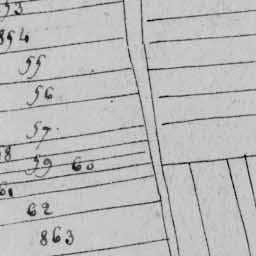 853
854
55
56
57
58
59 60
61
62
863